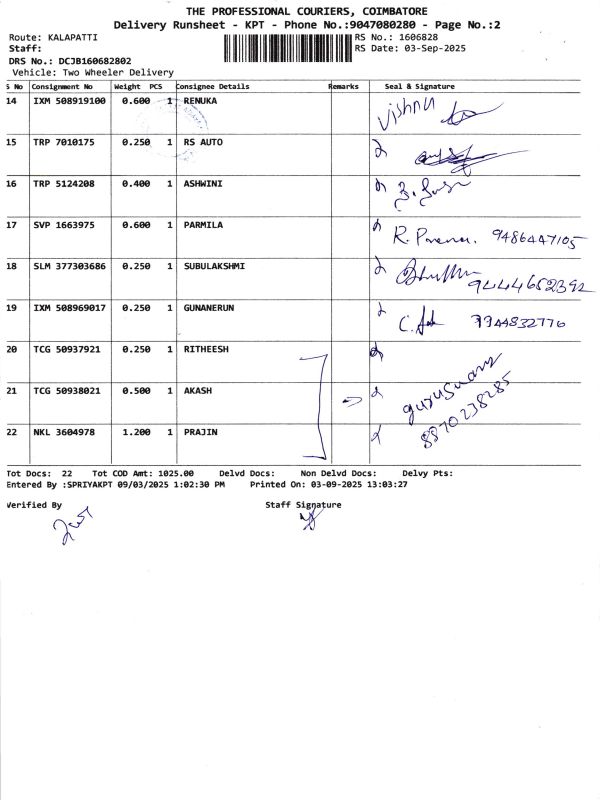 THE PROFESSIONAL COURIERS, COIMBATORE
Delivery Runsheet - KPT - Phone No.:9047080280 - Page No.:2
Route: KALAPATTI RS No.: 1606828
Staff: RS Date: 03-Sep-2025
DRS No.: DCJB160682802
Vehicle: Two Wheeler Delivery
S No Consignment No Weight PCS Consignee Details Remarks Seal & Signature
14 IXM 508919100 0.600 1 RENUKA Vishnu
15 TRP 7010175 0.250 1 RS AUTO
16 TRP 5124208 0.400 1 ASHWINI
17 SVP 1663975 0.600 1 PARMILA R. 9486447105
18 SLM 377303686 0.250 1 SUBULAKSHMI 9444652392
19 IXM 508969017 0.250 1 GUNANERUN 7944832776
20 TCG 50937921 0.250 1 RITHEESH
21 TCG 50938021 0.500 1 AKASH guruswamy
22 NKL 3604978 1.200 1 PRAJIN 8870238285
Tot Docs: 22 Tot COD Amt: 1025.00 Delvd Docs: Non Delvd Docs: Delvy Pts:
Entered By :SPRIYAKPT 09/03/2025 1:02:30 PM Printed On: 03-09-2025 13:03:27
Verified By Staff Signature